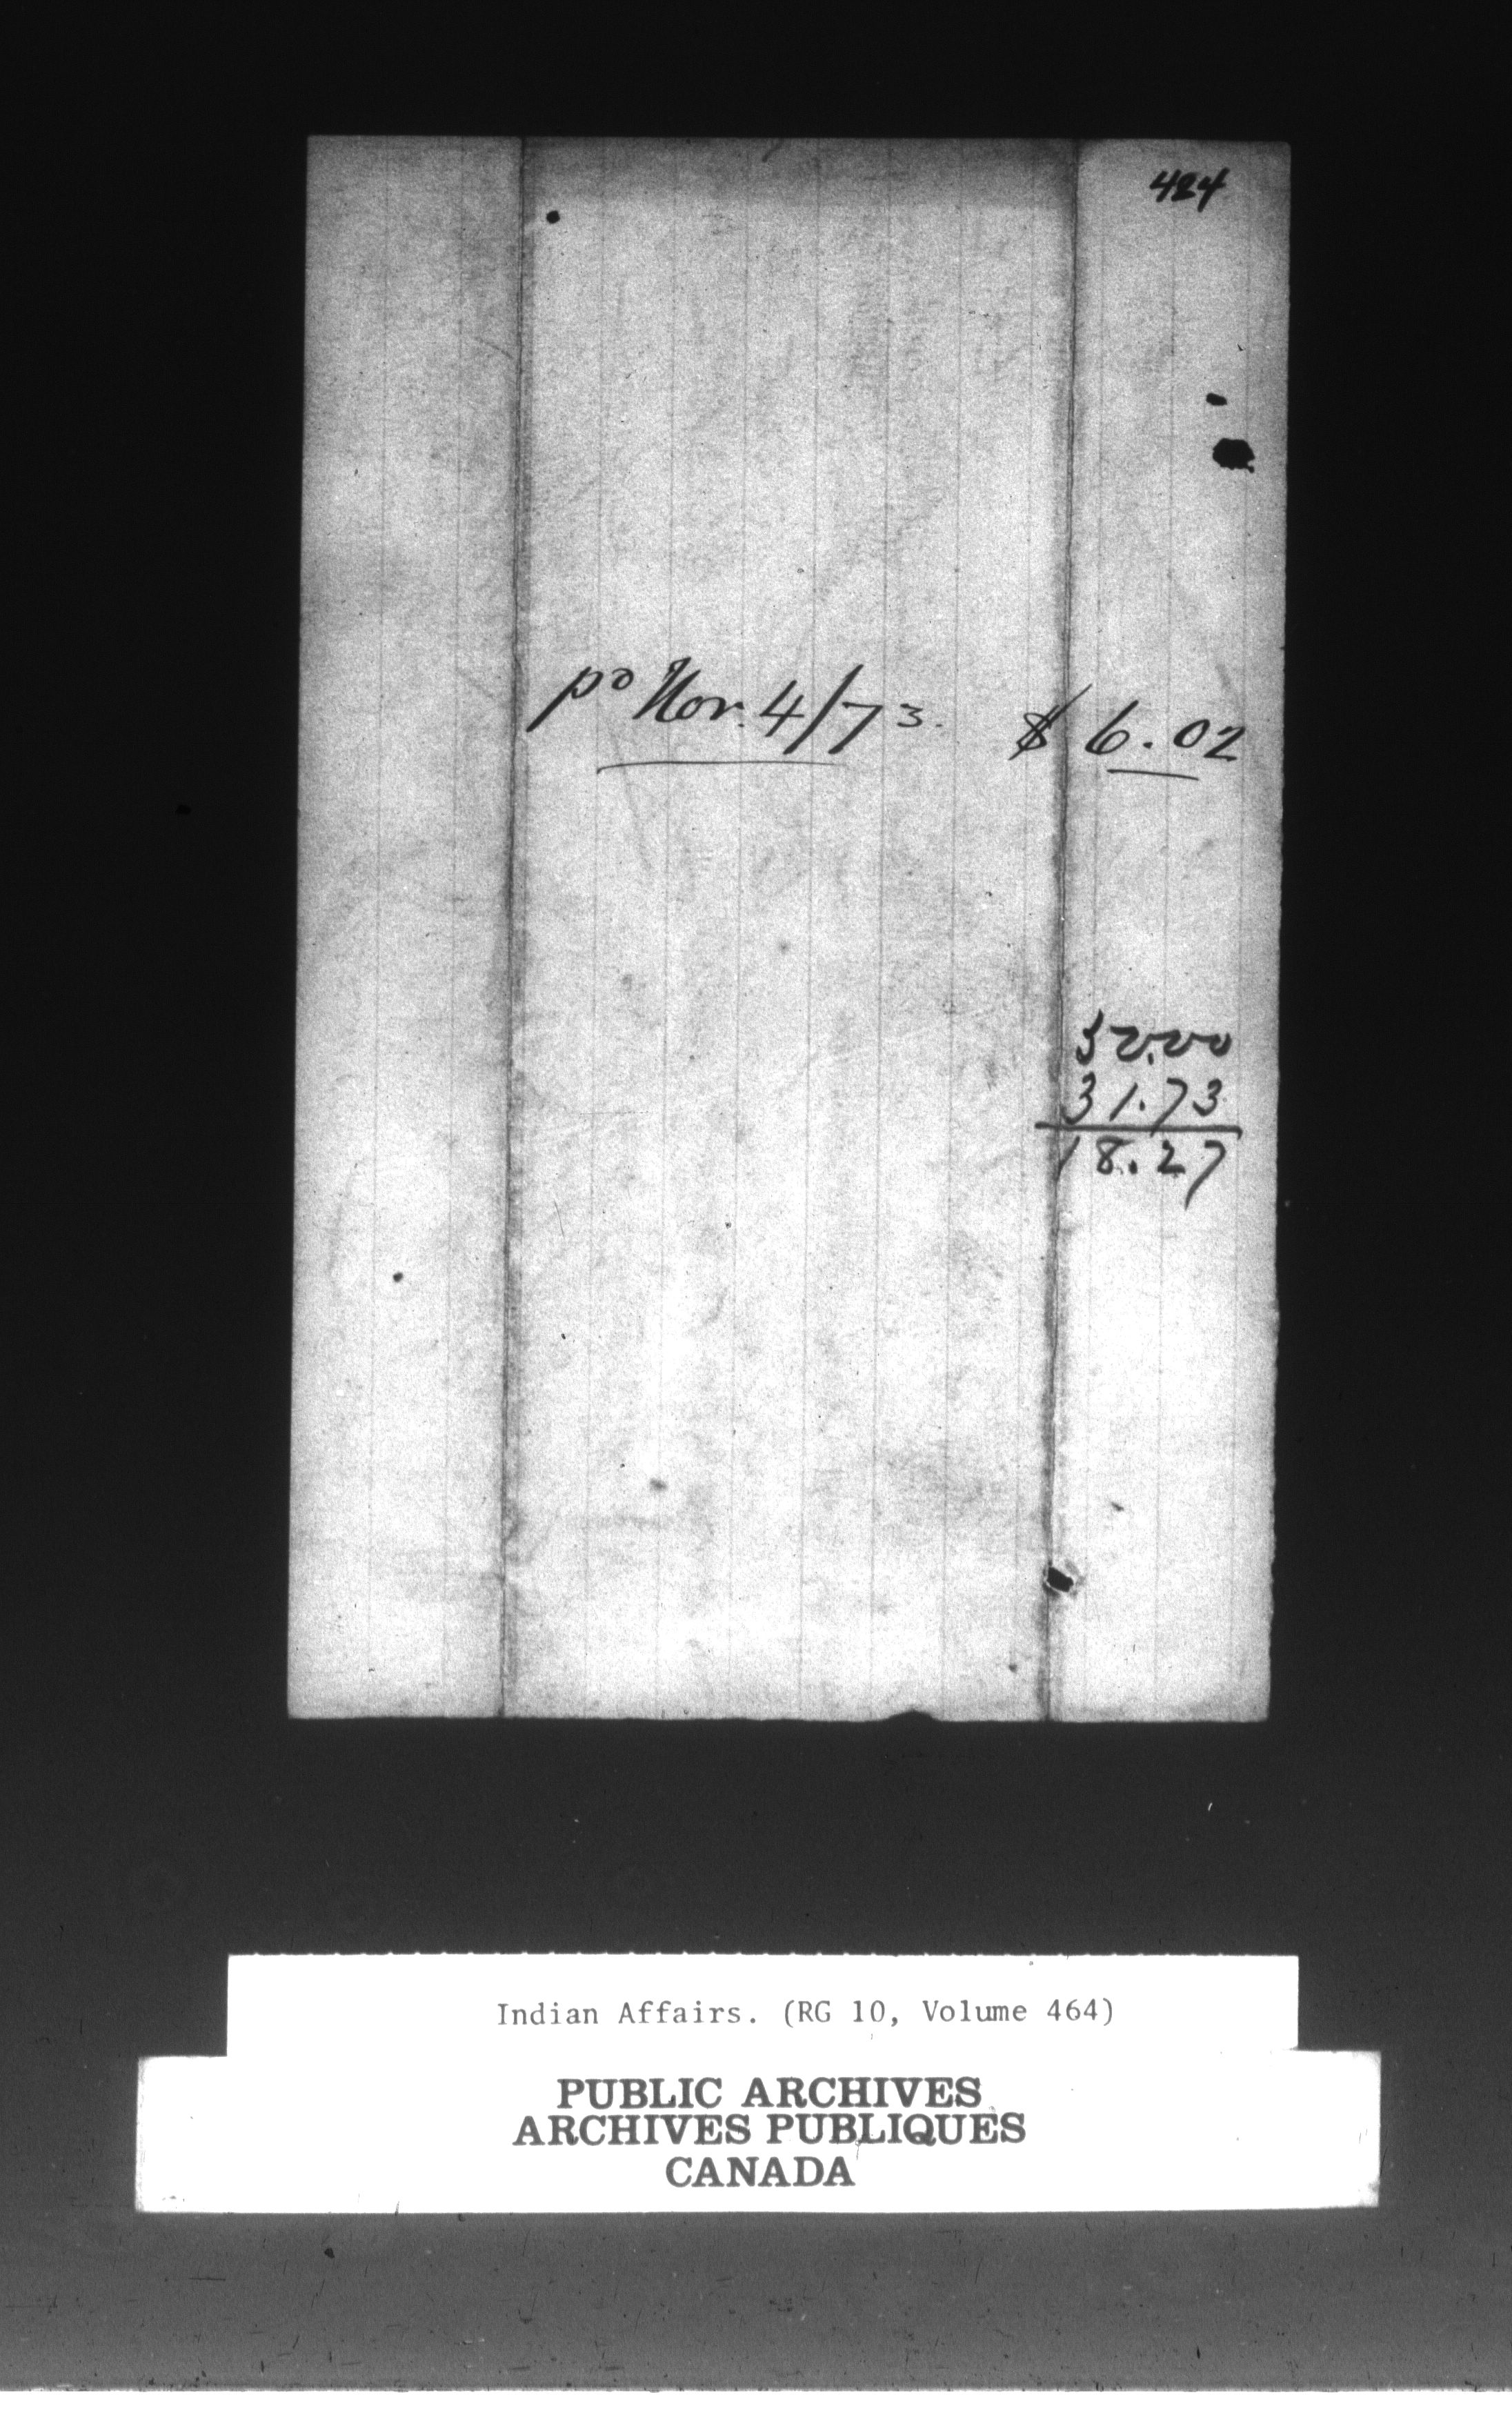 424
po Nov. 4/73. $ 6.02
50.00
31.73
18.27
Indian Affairs. (RG 10, Volume 464)
PUBLIC ARCHIVES
ARCHIVES PUBLIQUES
CANADA